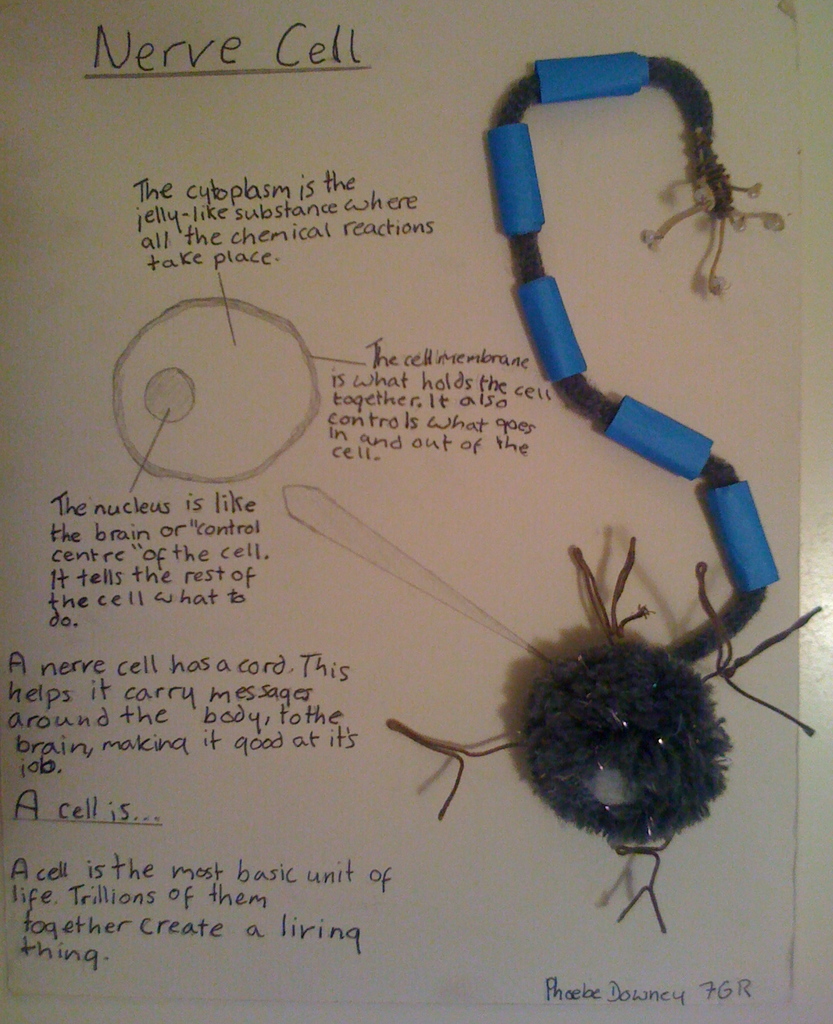 Nerve Cell
The cytoplasm is the
jelly-like substance where
all the chemical reactions
take place.
The cell membrane
is what holds the cell
together. It also
controls what goes
in and out of the
cell.
The nucleus is like
the brain or "control
centre" of the cell.
It tells the rest of
the cell what to
do.
A nerve cell has a cord. This
helps it carry messages
around the body, to the
brain, making it good at it's
job.
A cell is...
A cell is the most basic unit of
life. Trillions of them
together create a living
thing.
Phoebe Downey 7GR